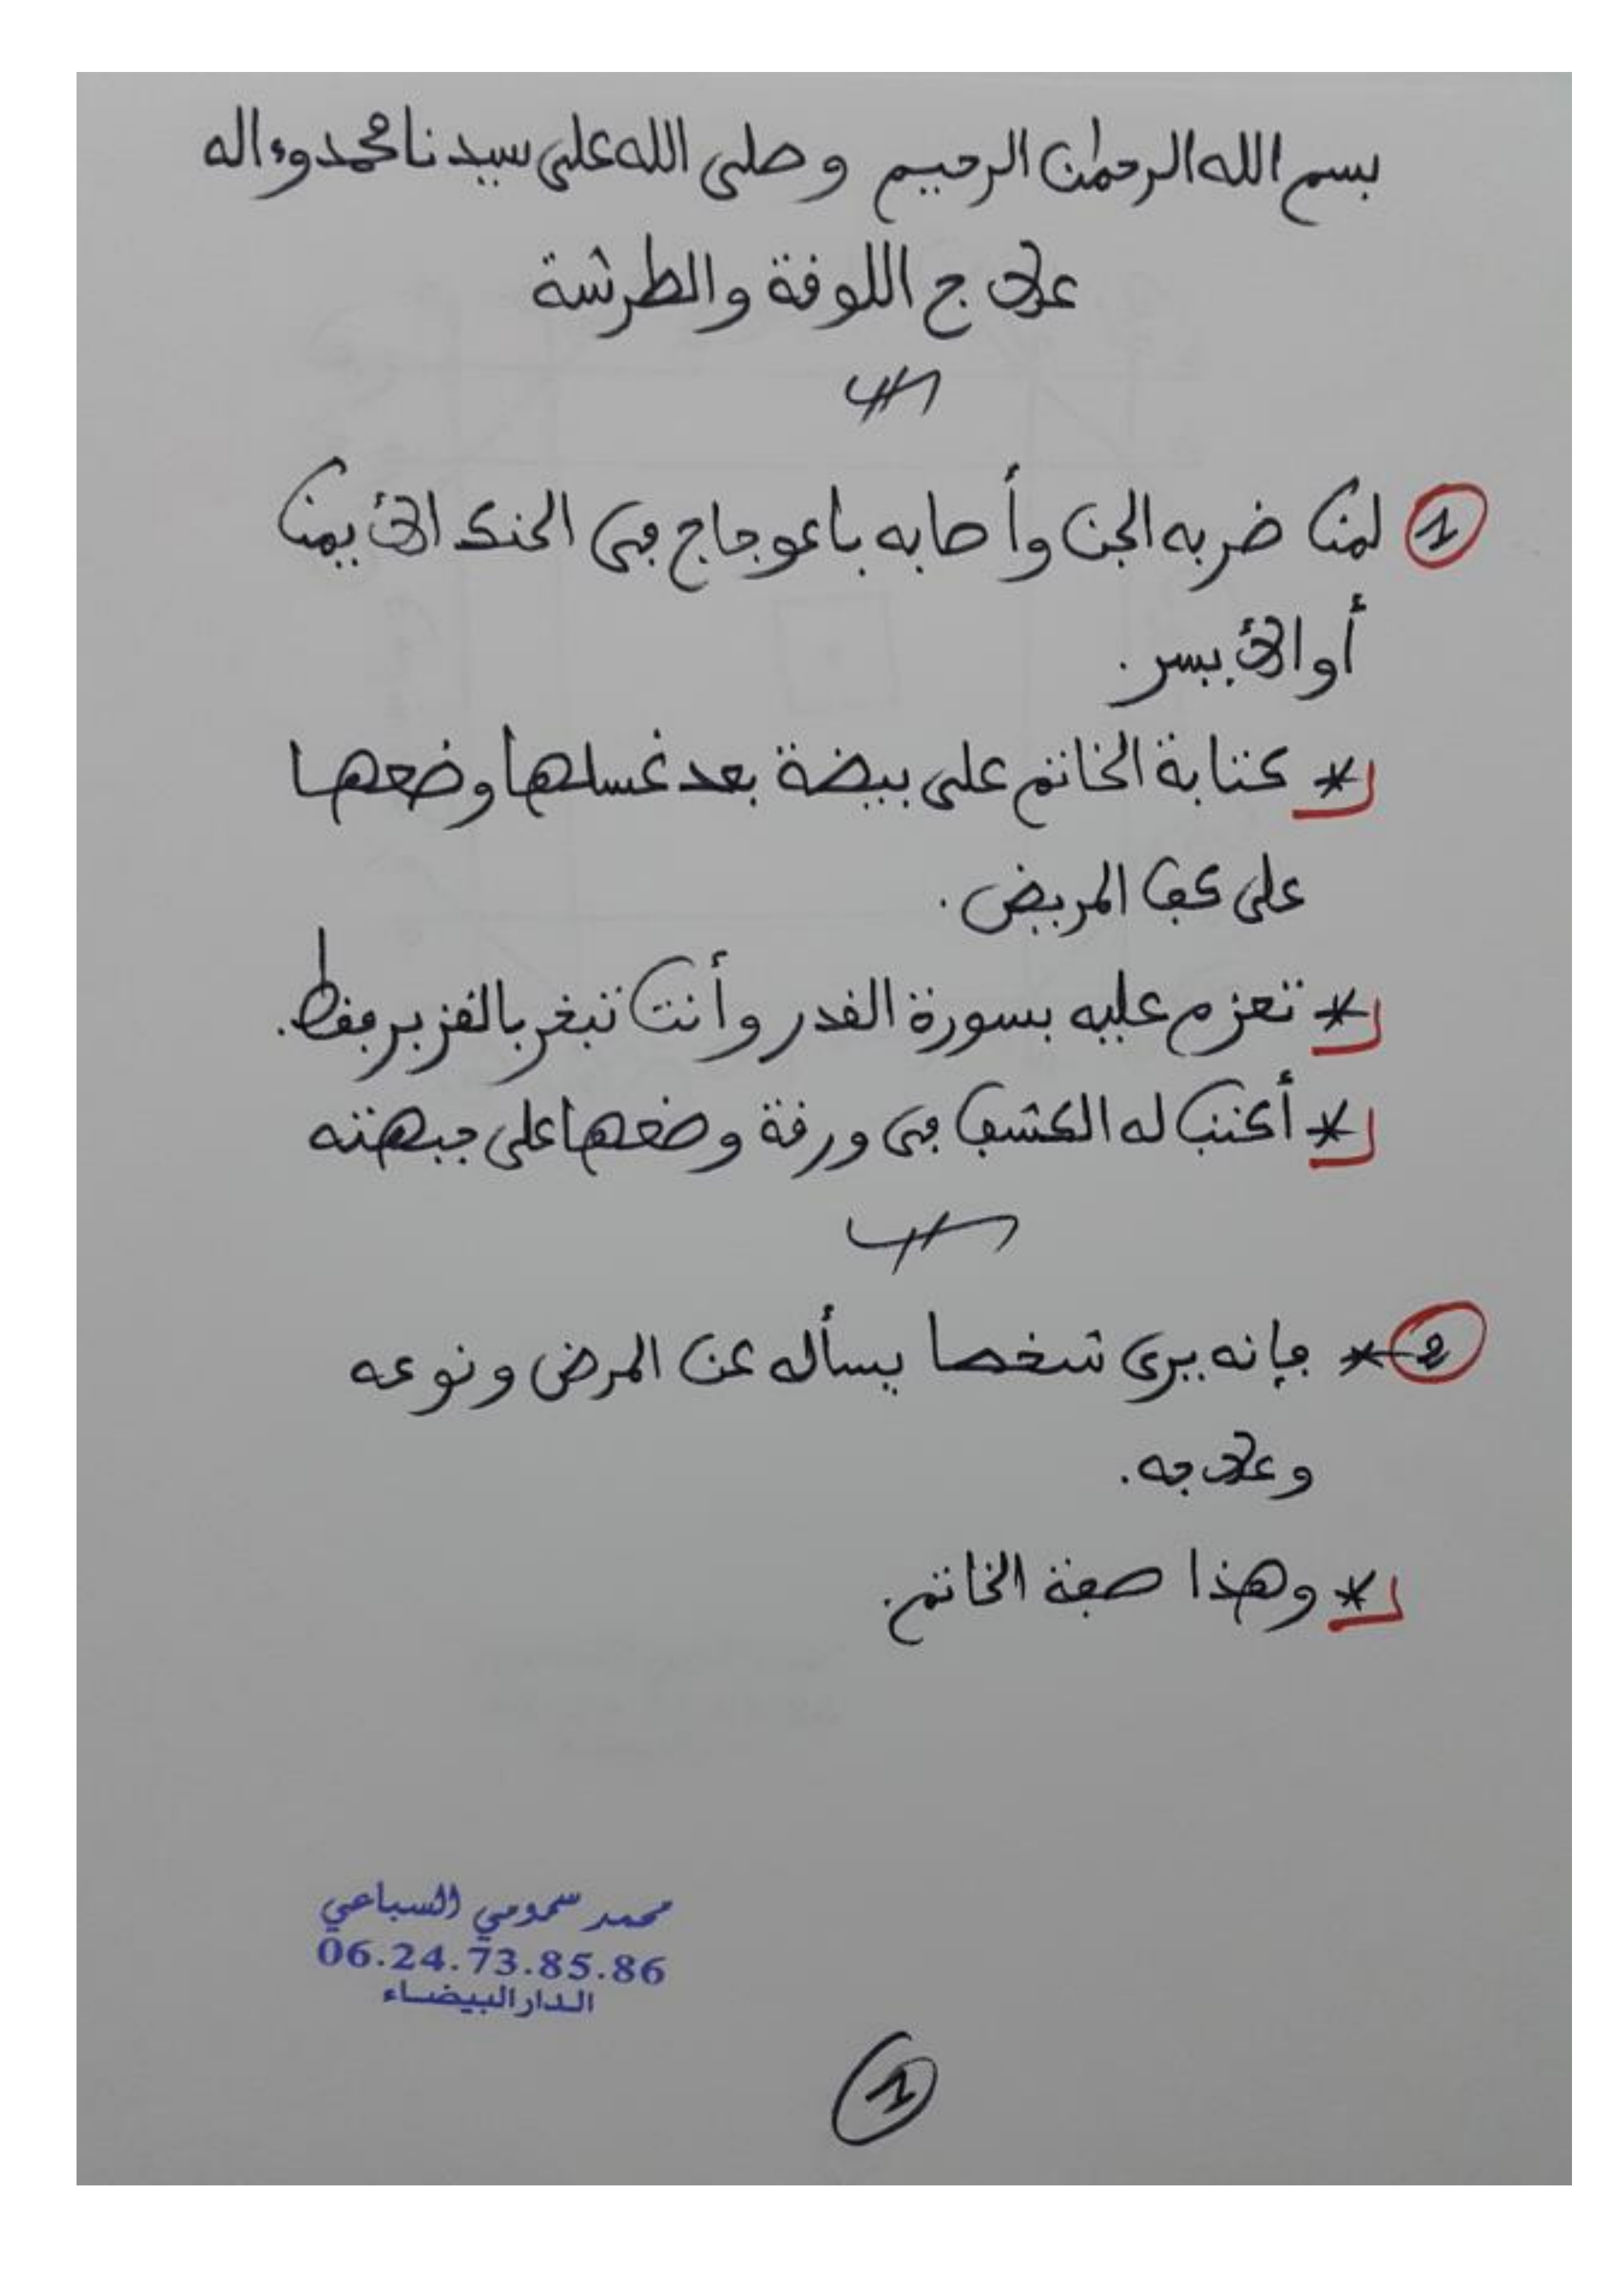 بسم الله الرحمٰن الرحيم وصلى الله على سيدنا محمد وءاله
علاج اللوقة والطرشة
1 لمن ضربه الجن وأصابه باعوجاج في الحنك الأيمن
أو الأيسر.
* كتابة الخاتم على بيضة بعد غسلها وضعها
على كف المريض.
* تعزم عليه بسورة القدر وأنت تبخر بالقزبر فقط.
* أكتب له الكشف في ورقة وضعها على جبهته
2 * فإنه يرى شخصا يسأله عن المرض ونوعه
وعلاجه.
* وهذا صفة الخاتم.
محمد سمومي السباعي
06.24.73.85.86
الدار البيضاء
1